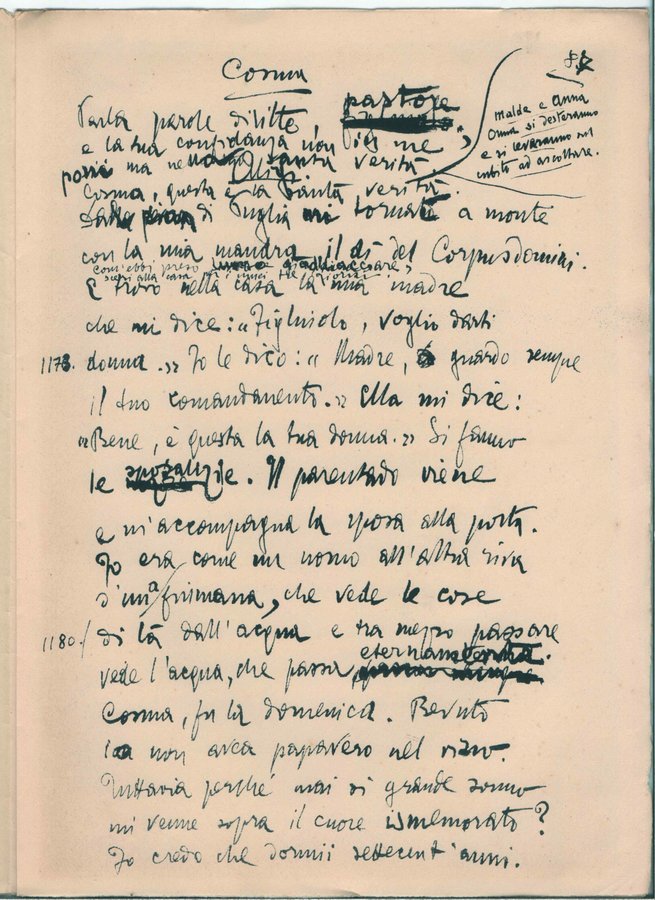 Cosma
Parla parole diritte, pastore,
e la tua confidanza non sia me
poni ma nella santa verità
Aligi.
Cosma, questa è la santa verità.
di Puglia tornato a monte
con la mia mandra il dì del Corpusdomini.
com'ebbi preso luogo giadhiacciare,
scesi alla casa per i miei tre giorni.
E trovo nella casa la mia madre
che mi dice: "Figliuolo, voglio darti
1173. donna." Io le dico: "Madre, guardo sempre
il tuo comandamento." Ella mi dice:
"Bene, è questa la tua donna." Si fanno
le sposalizie. Il parentado viene
e m'accompagna la sposa alla porta.
Io era come un uomo all'altra riva
d'una fiumana, che vede le cose
1180. di là dall'acqua e tra mezzo passare
vede l'acqua, che passa eternamente.
Cosma, fu la domenica. Bevuto
non avea papavero nel vino.
Tuttavia perché mai sì grande sonno
mi venne sopra il cuore ismemorato?
Io credo che dormii settecent'anni.
Malde e Anna
Onna si desteranno
e si leveranno sul
cubito ad ascoltare.